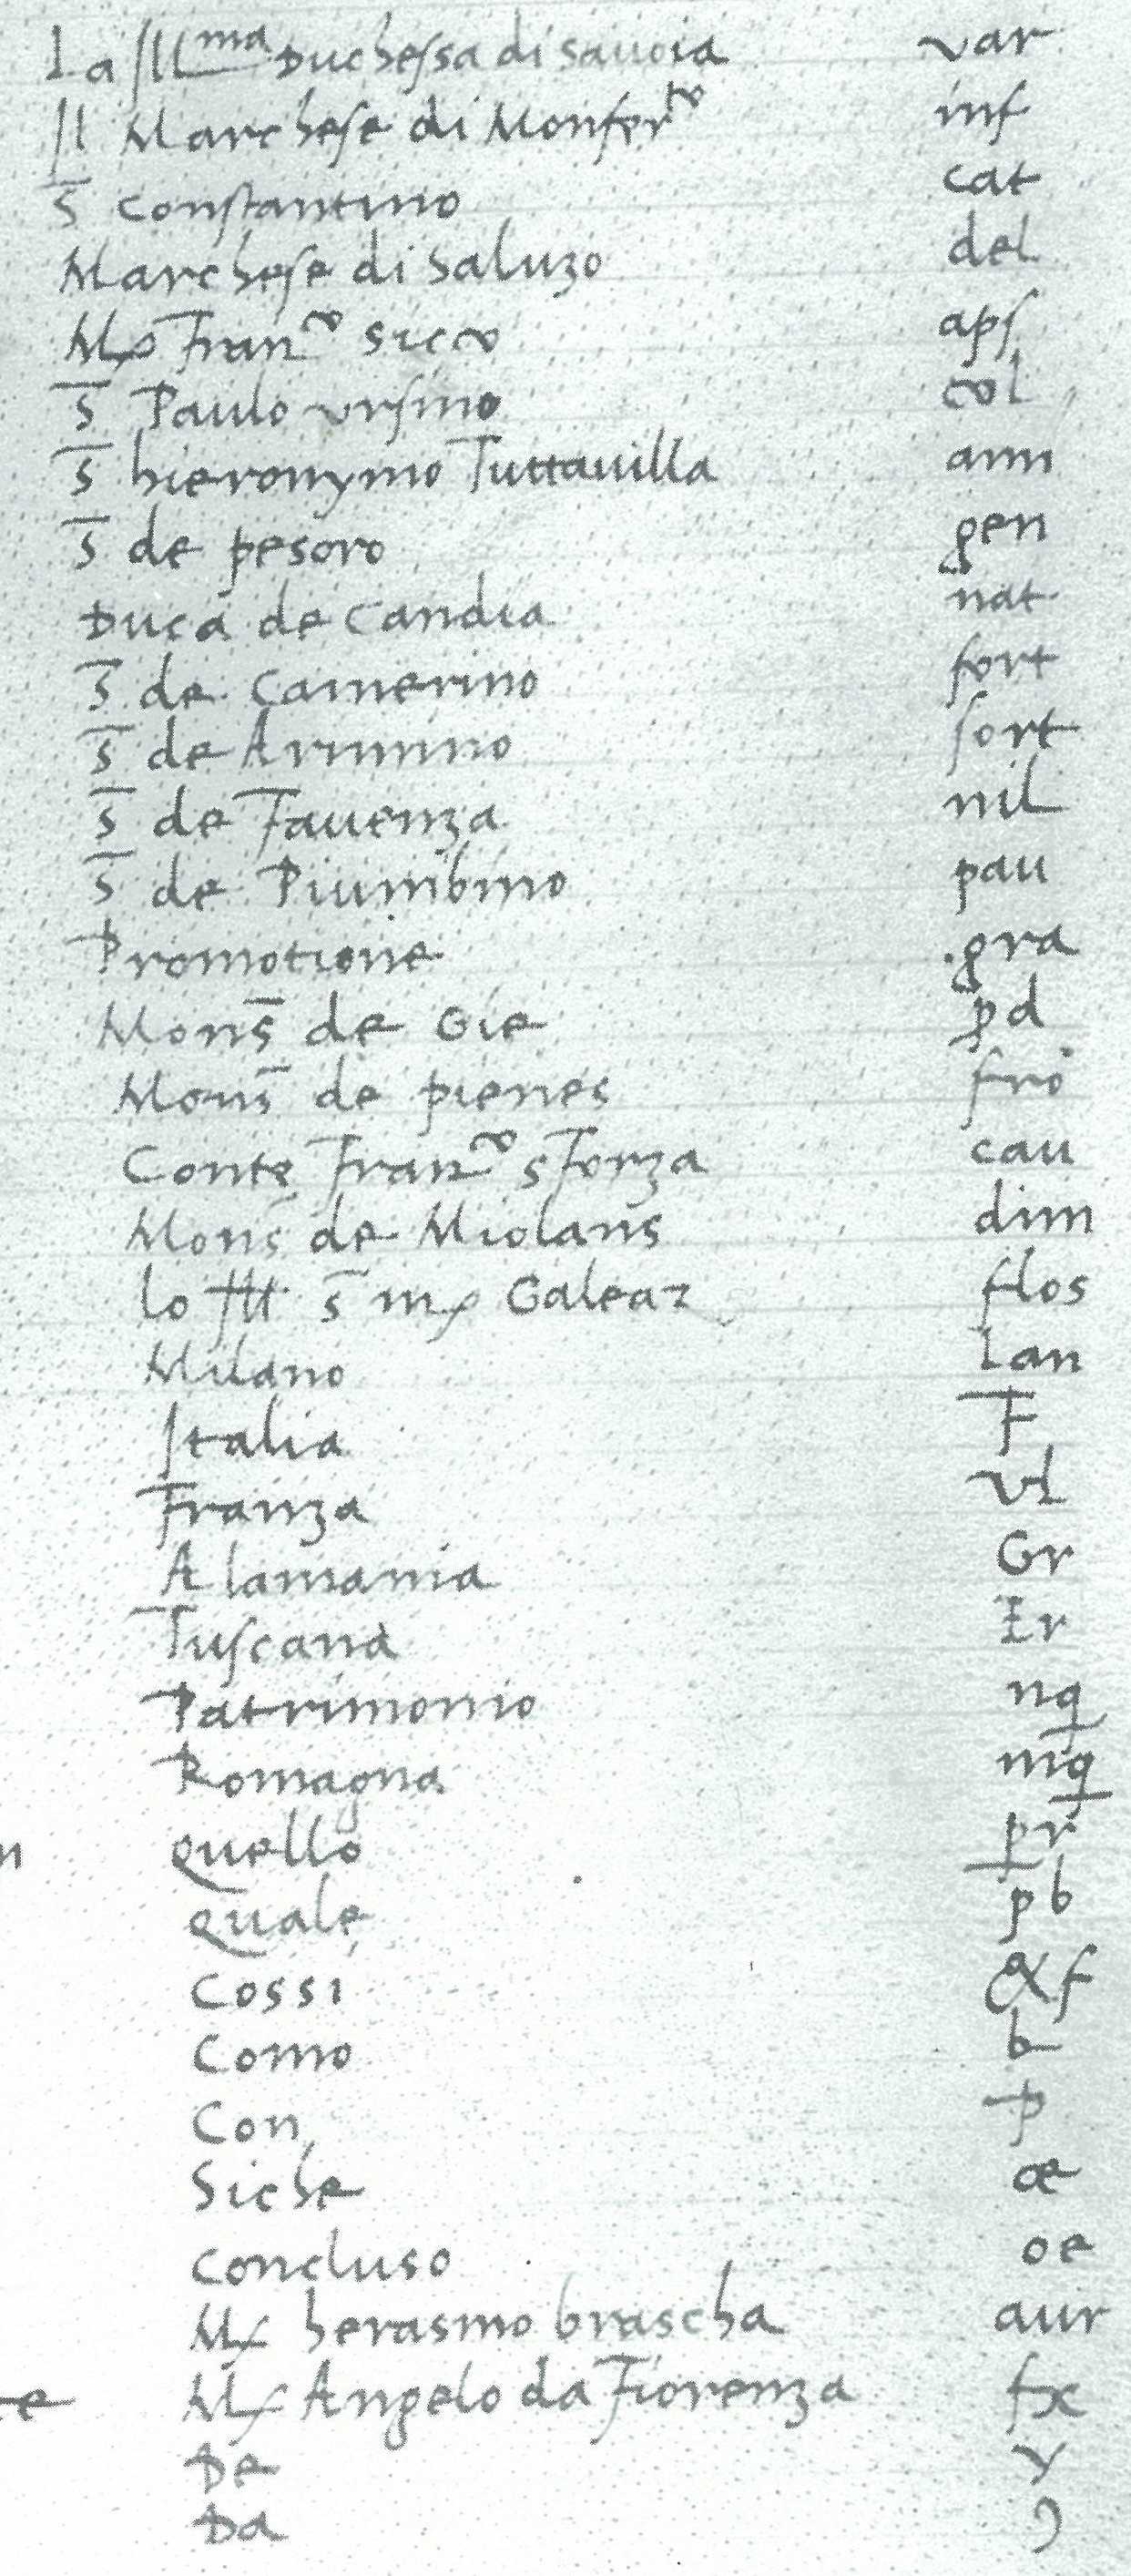 La Ill^ma Duchessa di Sauoia var
Il Marchese di Monfer^to inf
S̄ Constantino cat
Marchese di Saluzo del
M Fran^co Sicco aps
S̄ Paulo Vrsino col
S̄ hieronymo Tuttauilla ann
S̄ de pesoro gen
Duca de Candia nat
S̄ de Camerino fort
S̄ de Arimino sort
S̄ de Fauenza nil
S̄ de Piumbino pau
Promotione .gra
Mons̄ de Gie pd
Mons̄ de pienes fro
Conte Fran^co Sforza cau
Mons̄ de Miolans dim
lo Ill S̄ m Galeaz flos
Milano lan
Italia F
Franza vl
Alamania Gr
Tuscana Er
Patrimonio nq
Romagna mq
n quello pr
quale pb
Cossi &f
Como b
Con p
Siche æ
Concluso oe
M herasmo brascha aur
re M Angelo da Fiorenza fx
De y
Da 9